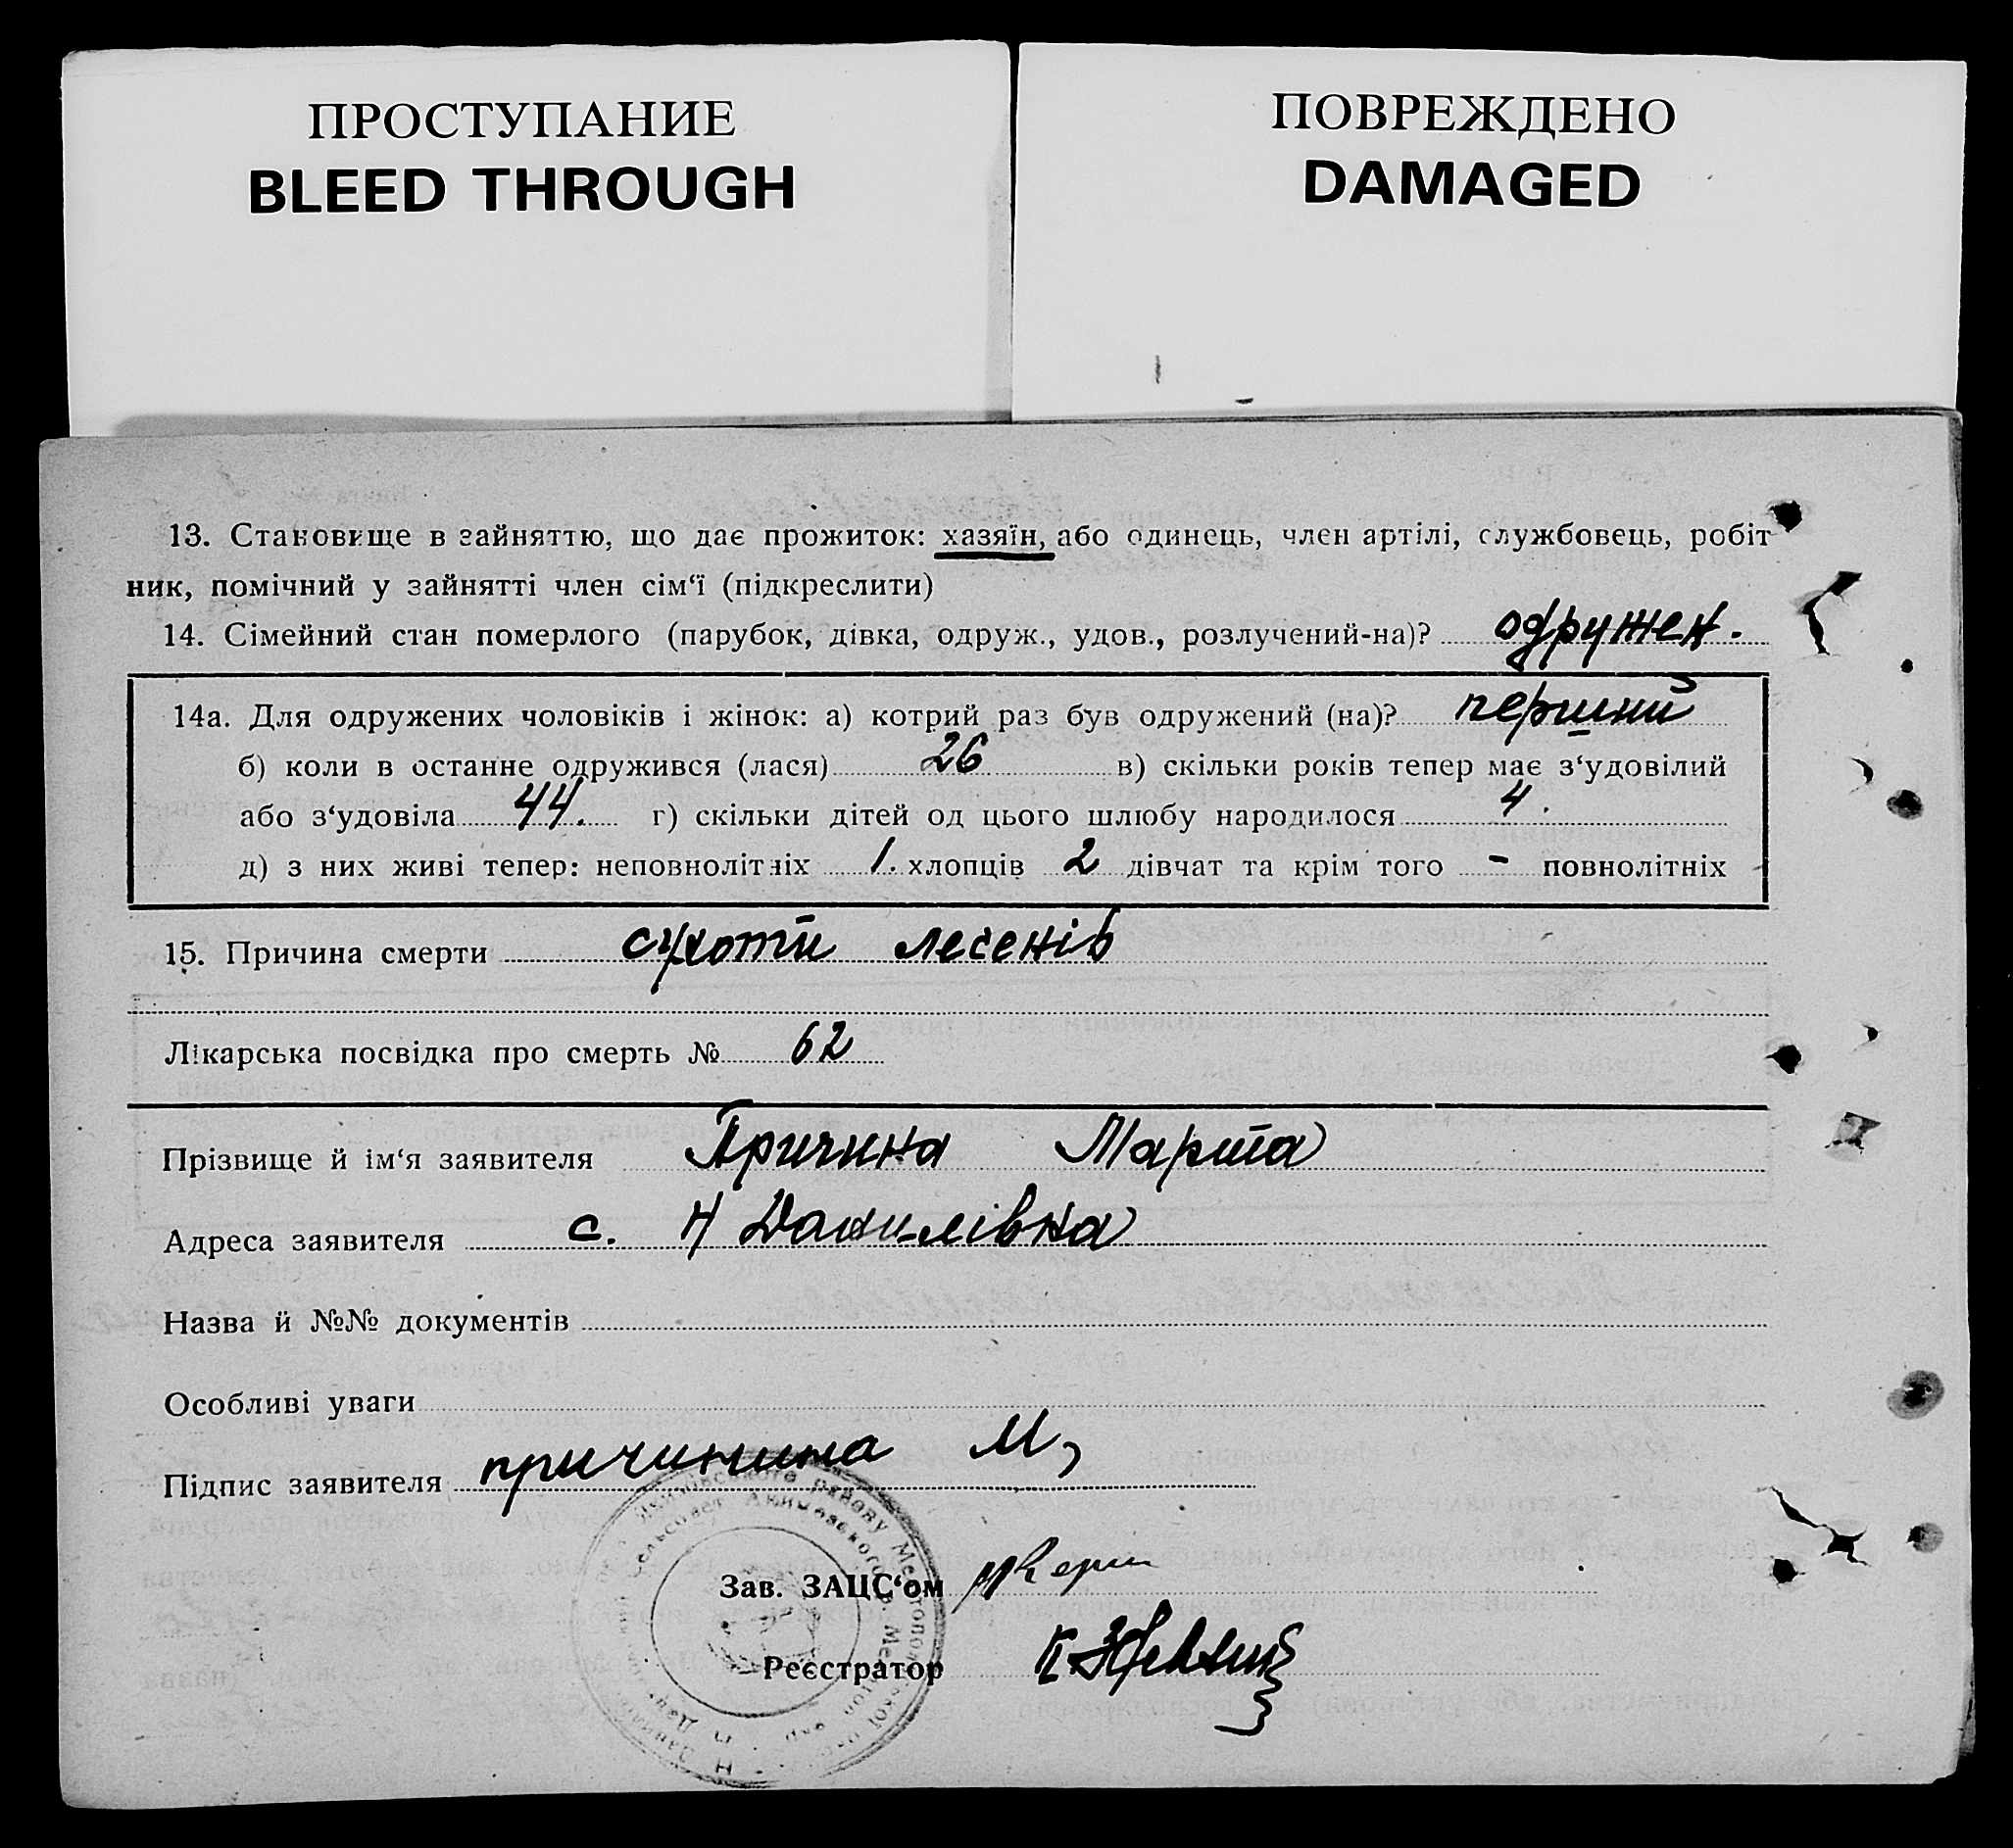 ПРОСТУПАНИЕ
BLEED THROUGH
ПОВРЕЖДЕНО
DAMAGED
13. Становище в зайняттю, що дає прожиток: хазяїн, або одинець, член артілі, службовець, робіт
ник, помічний у зайнятті член сім‘ї (підкреслити)
14. Сімейний стан померлого (парубок, дівка, одруж., удов., розлучений-на)? одружен.
14а. Для одружених чоловіків і жінок: а) котрий раз був одружений (на)? перший
б) коли в останне одружився (лася) 26 в) скільки років тепер має з‘удовілий
або з‘удовіла 44. г) скільки дітей од цього шлюбу народилося 4.
д) з них живі тепер: неповнолітніх 1. хлопців 2 дівчат та крім того - повнолітніх
15. Причина смерти сухоти легенів
Лікарська посвідка про смерть № 62
Прізвище й ім‘я заявителя Причина Марта
Адреса заявителя с. Н Данилівка
Назва й №№ документів
Особливі уваги
Підпис заявителя причинина М,
Зав. ЗАЦС‘ом
Реєстратор